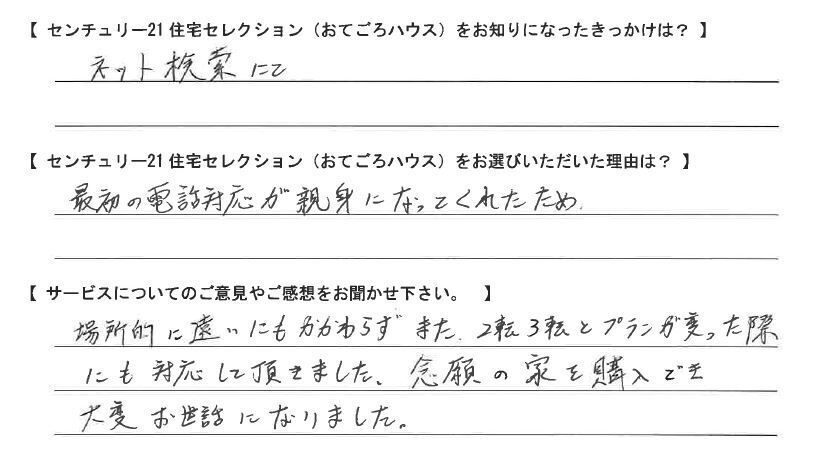 【 センチュリー21 住宅セレクション（おてごろハウス）をお知りになったきっかけは？ 】
ネット検索にて
【 センチュリー21 住宅セレクション（おてごろハウス）をお選びいただいた理由は？ 】
最初の電話対応が親身になってくれたため.
【 サービスについてのご意見やご感想をお聞かせ下さい。 】
場所的に遠いにもかかわらず また、2転3転とプランが変った際
にも 対応して頂きました、念願の家を購入でき
大変お世話になりました。